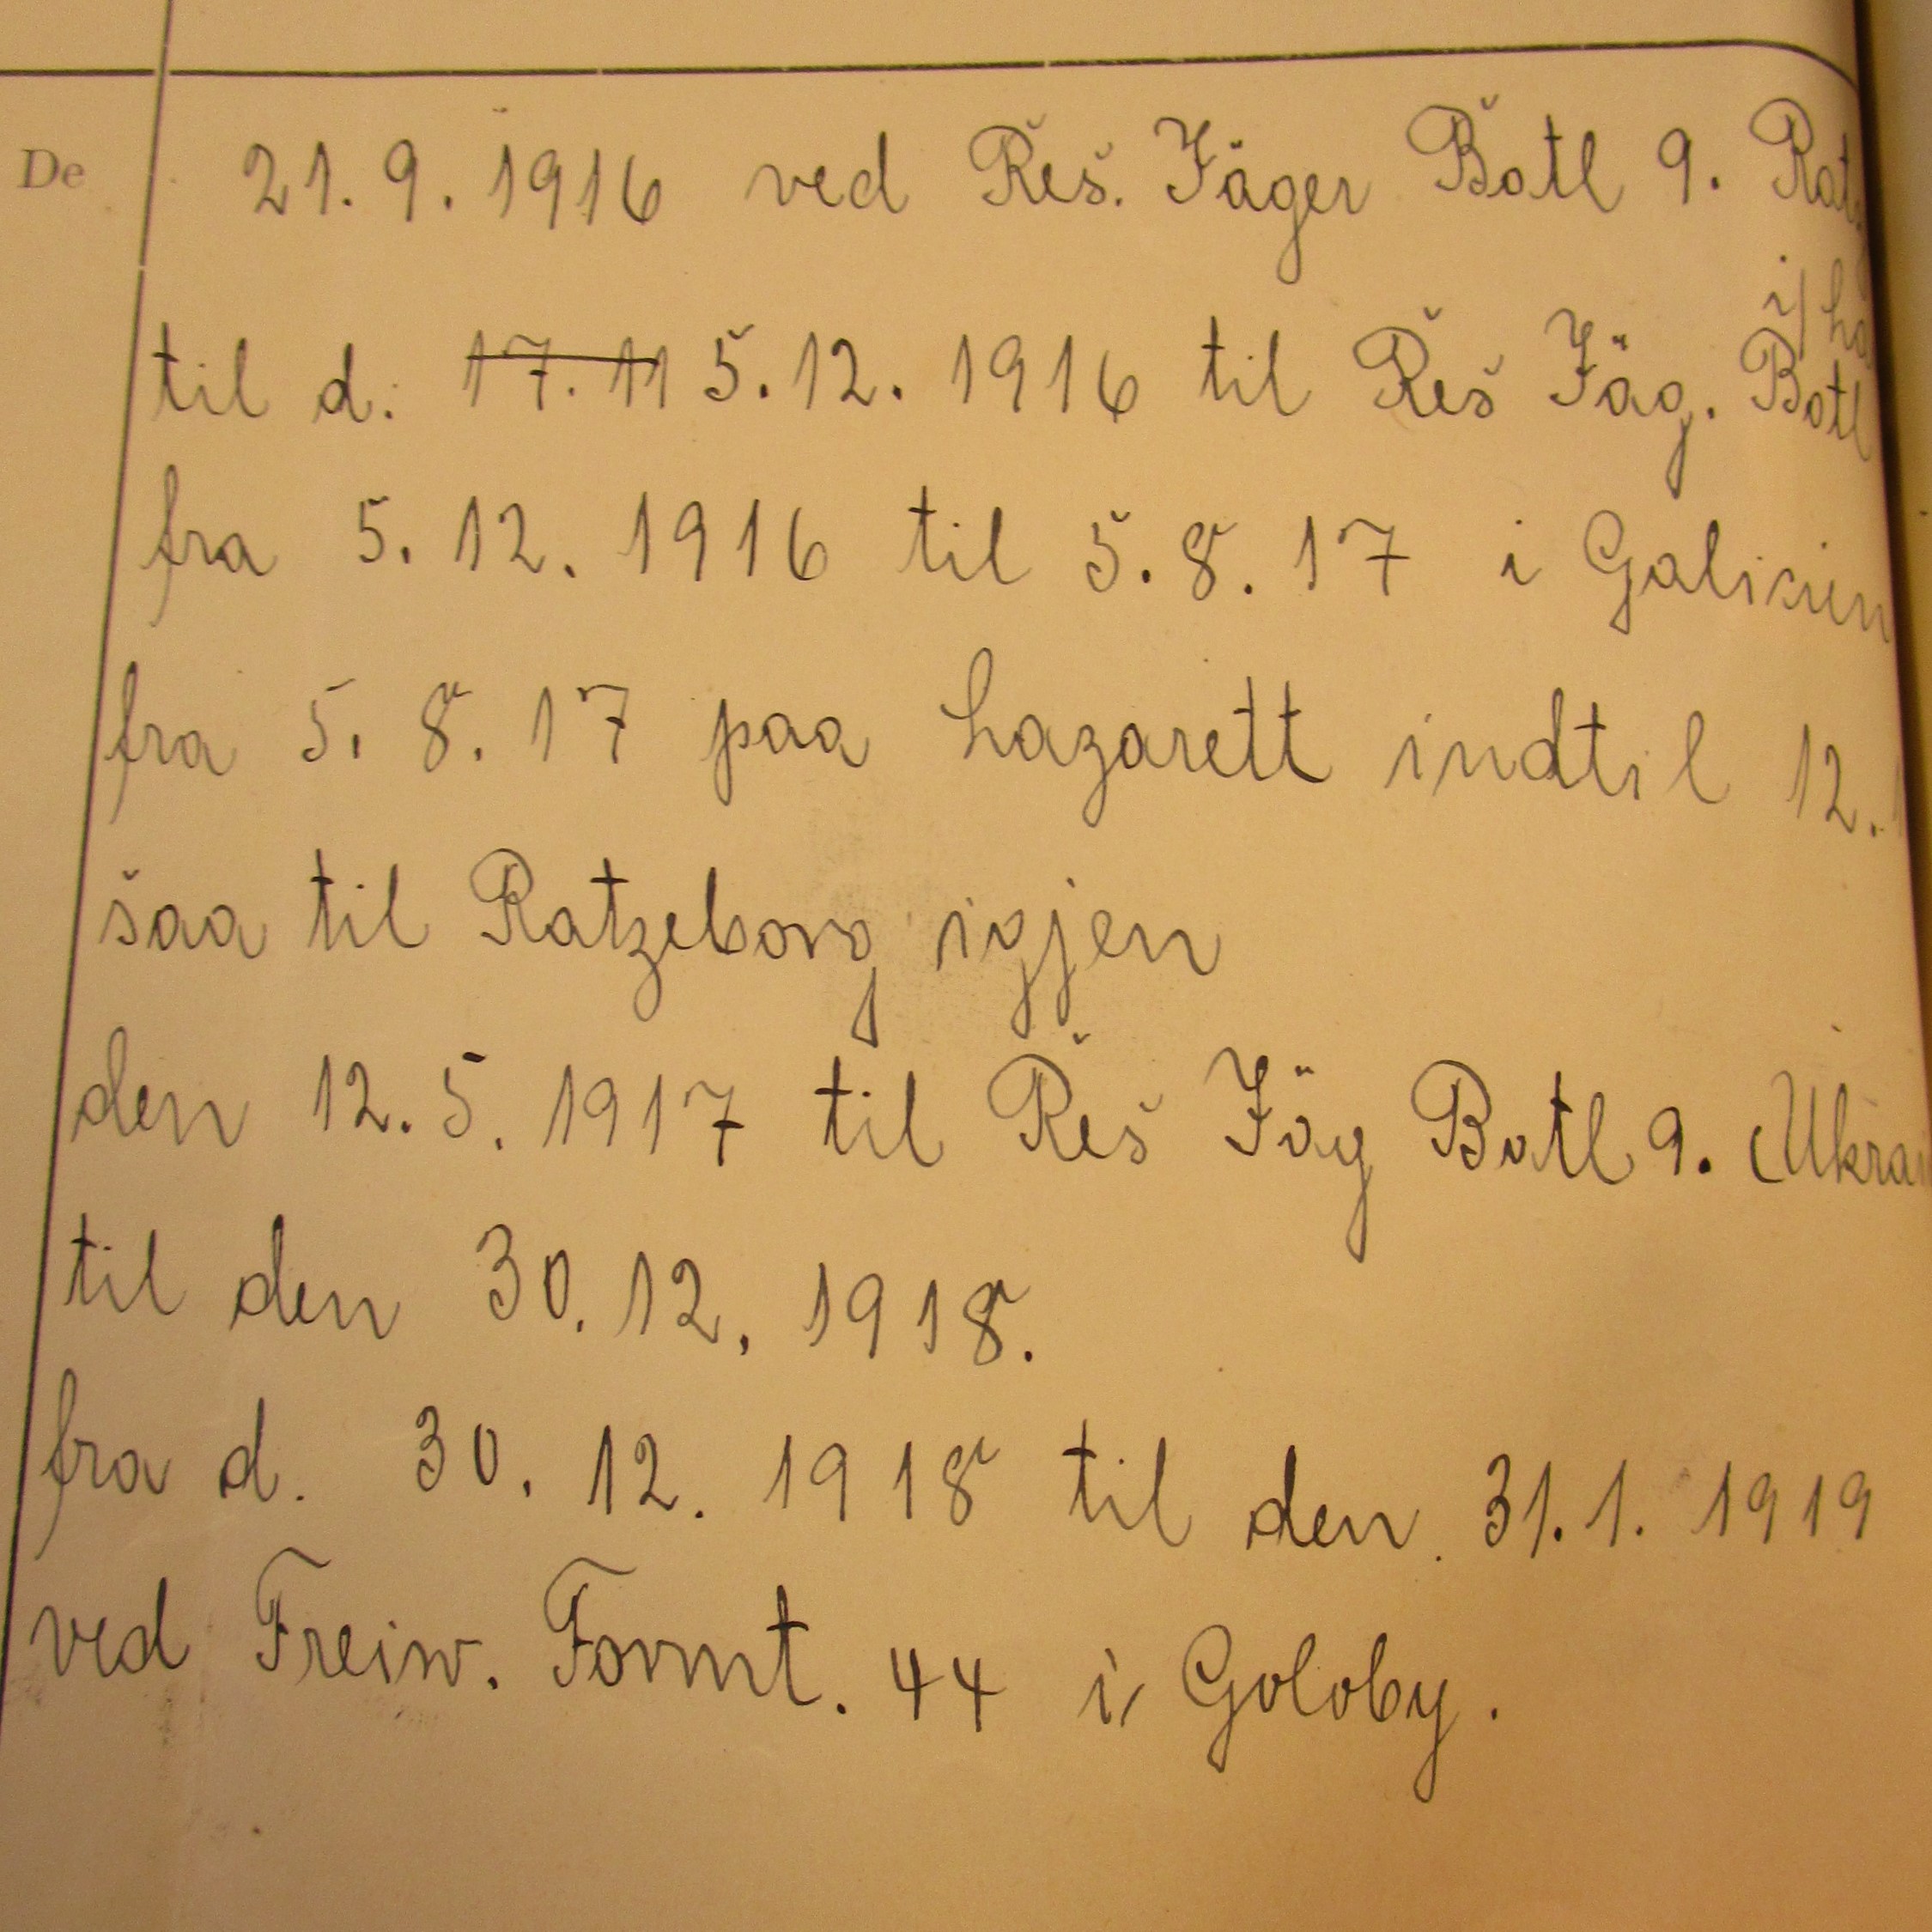 De 21. 9. 1916 ved Res. Jäger Batl 9. Ratz
til d. 17. 11 5. 12. 1916 til Res Jäg. Batl
fra 5. 12. 1916 til 5. 8. 17 i Galisien
fra 5. 8. 17 paa Lazarett indtil 12.
saa til Ratzeborg igjen
den 12. 5. 1917 til Res Jäg Batl 9. Ukra
til den 30. 12. 1918.
fra d. 30. 12. 1918 til den 31. 1. 1919
ved Freiw. Formt. 44 i Goloby.